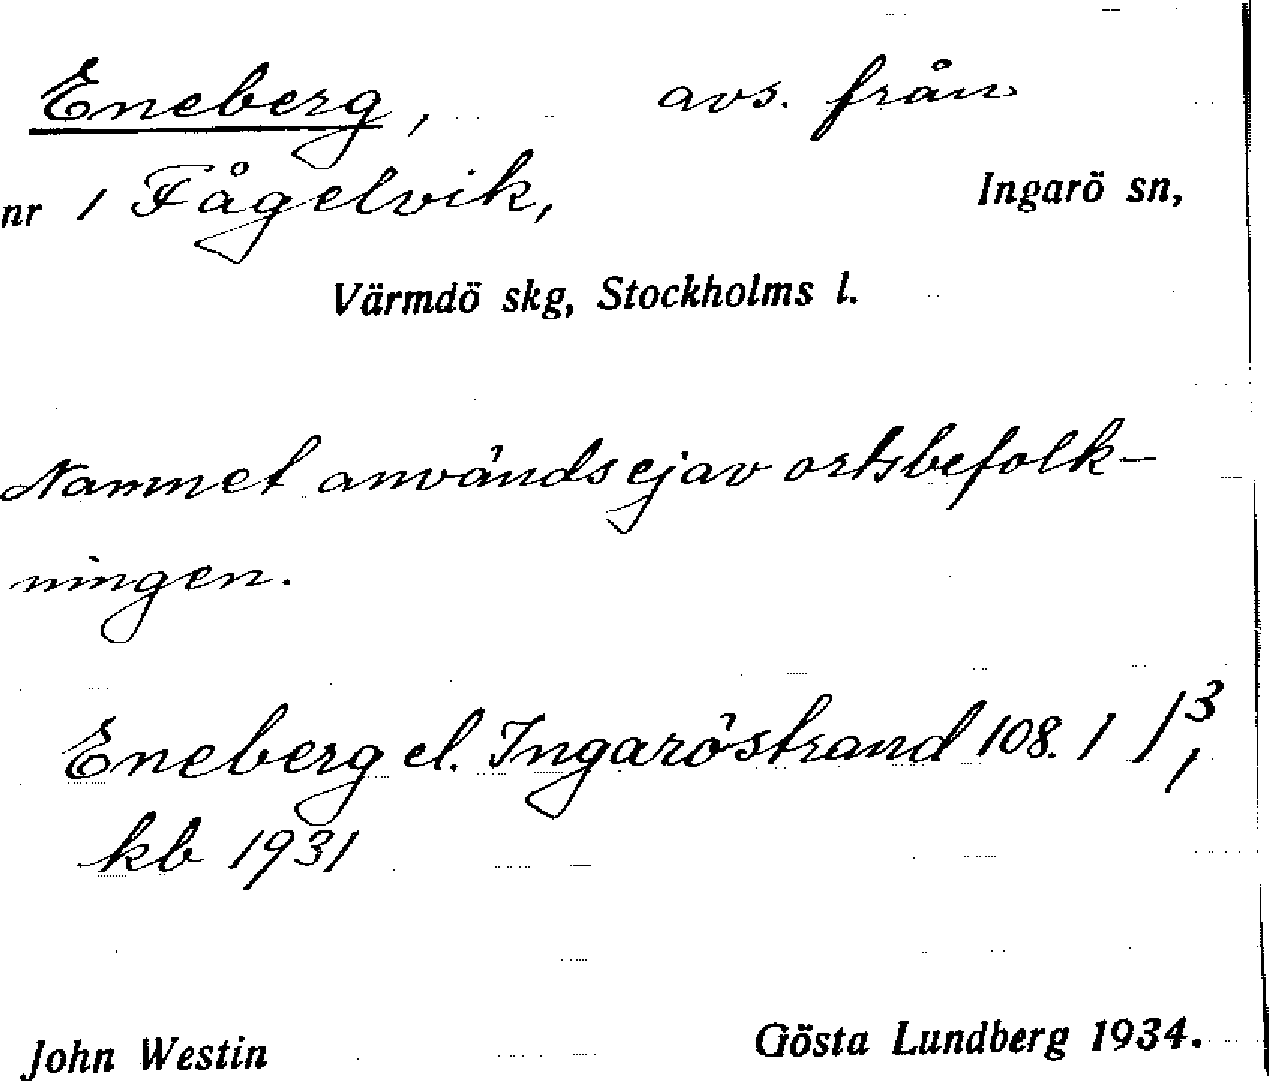 Eneberg, avs. från
nr 1 Fågelvik, Ingarö sn,
Värmdö skg, Stockholms l.
Namnet användes ej av ortsbefolk-
ningen.
Eneberg el. Ingaröstrand 108. 1 /3,
kb 1931
John Westin Gösta Lundberg 1934.